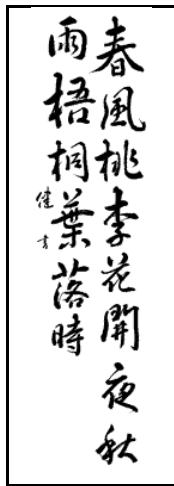 春風桃李花開夜秋
雨梧桐葉落時
健書